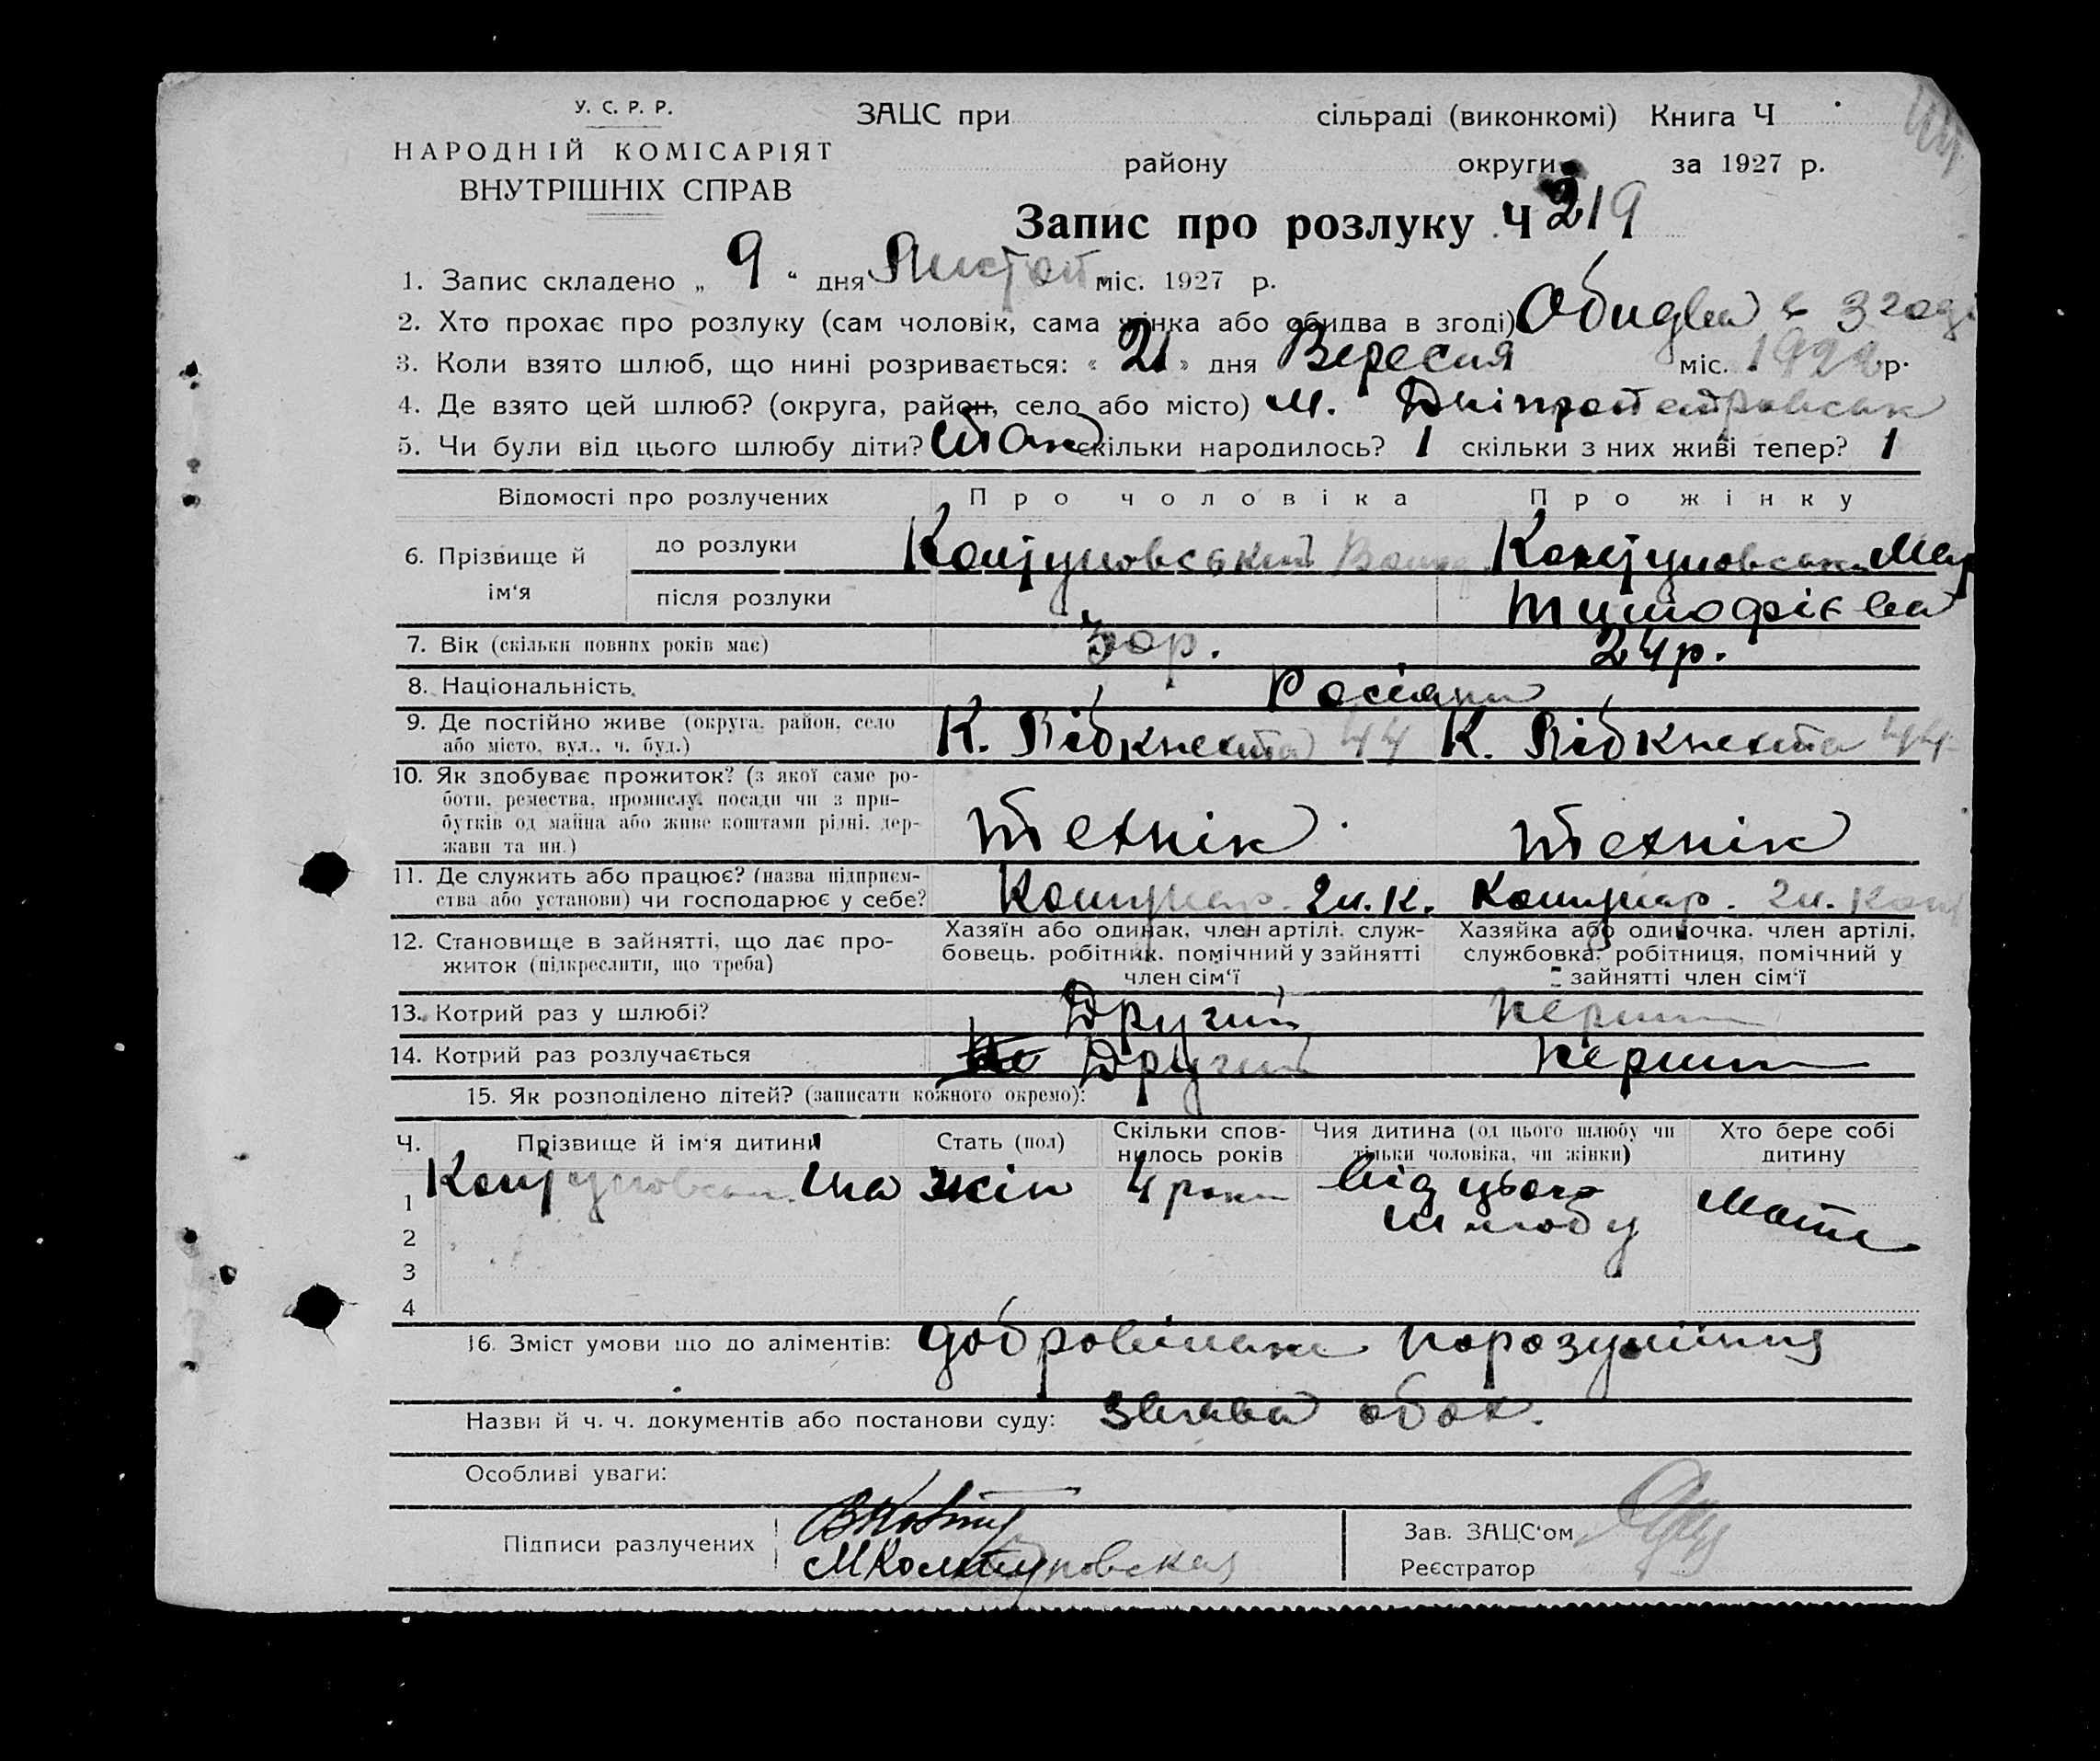 У. С. Р. Р.
НАРОДНІЙ КОМІСАРІЯТ
ВНУТРІШНІХ СПРАВ
ЗАЦС при сільраді (виконкомі) Книга Ч
району округи за 1927 р.
Запис про розлуку Ч 219
1. Запис складено „ 9 “ дня Листоп міс. 1927 р.
2. Хто прохає про розлуку (сам чоловік, сама жінка або обидва в згоді) Обидва в згоді
3. Коли взято шлюб, що нині розривається: « 21 » дня Вересня міс. р.
4. Де взято цей шлюб? (округа, район, село або місто) м. Дніпропетровськ
5. Чи були від цього шлюбу діти? так скільки народилось? 1 скільки з них живі тепер? 1
Відомості про розлучених Про чоловіка Про жінку
6. Прізвище й ім‘я
до розлуки
після розлуки Тимофієва
7. Вік (скільки повних років має) 30р. 24р.
8. Національність Росіяни
9. Де постійно живе (округа, район, село або місто, вул., ч. буд.) К. Лібкнехта 44 К. Лібкнехта 44
10. Як здобуває прожиток? (з якої саме ро-
боти, ремества, промислу, посади чи з при-
бутків од майна або живе коштами рідні, дер-
жави та ин.) Технік Технік
11. Де служить або працює? (назва підприєм-
ства або установи) чи господарює у себе?
12. Становище в зайнятті, що дає про-
житок (підкреслити, що треба)
Хазяїн або одинак, член артілі, служ-
бовець, робітник, помічний у зайнятті
член сім‘ї
Хазяйка або одиночка, член артілі,
службовка, робітниця, помічний у
зайнятті член сім‘ї
13. Котрий раз у шлюбі? Другий Перший
14. Котрий раз розлучається Другий Перший
15. Як розподілено дітей? (записати кожного окремо):
Ч. Прізвище й ім‘я дитини Стать (пол) Скільки спов-
нилось років Чия дитина (од цього шлюбу чи
тільки чоловіка, чи жінки) Хто бере собі
дитину
1 жін 4 роки Від цього
шлюбу Мати
2
3
4
16. Зміст умови що до аліментів: добровільне порозуміння
Назви й ч. ч. документів або постанови суду: Заява обох.
Особливі уваги:
Підписи разлучених
Зав. ЗАЦС‘ом
Реєстратор